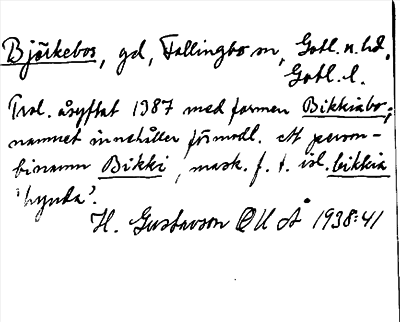 Björkebos, gd, Fallingbo sn, Gotl. n. hd,
Gotl. l.
Trol. åsyftat 1387 med formen Bikkiabo;
namnet innehåller förmodl. ett person-
binamn Bikki, mask. f. t. isl. bikkia
'hynda'.
H. Gustavson OUÅ 1938:41